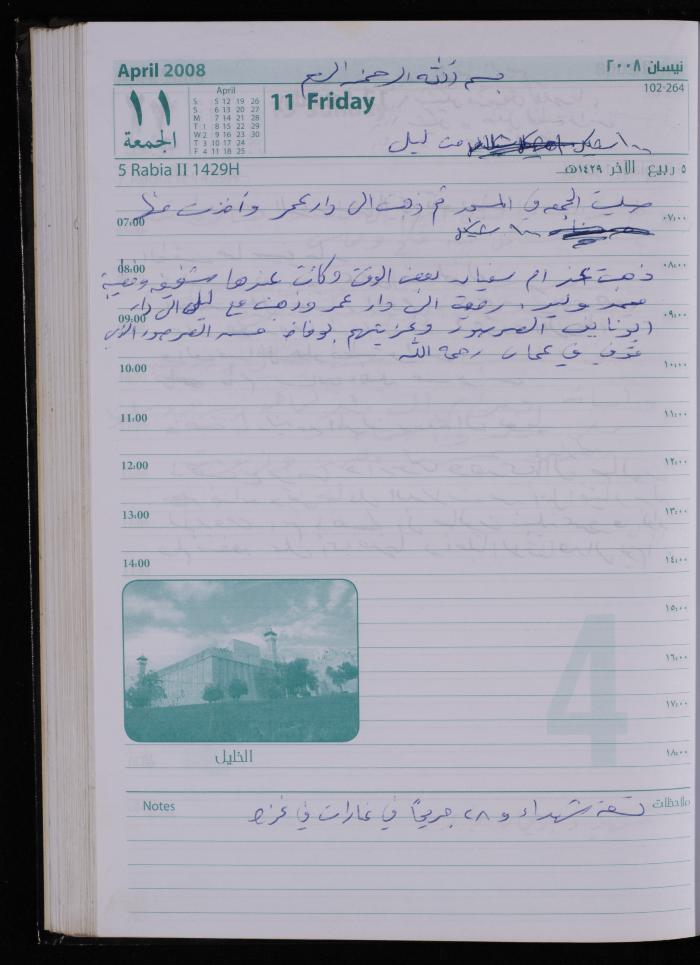 April 2008
نيسان ٢٠٠٨
بسم الله الرحمن الرحيم
102-264
١١
الجمعة
April
S 5 12 19 26
S 6 13 20 27
M 7 14 21 28
T 1 8 15 22 29
W 2 9 16 23 30
T 3 10 17 24
F 4 11 18 25
11 Friday
١٠٠ شيكل من ليلى
5 Rabia II 1429H
٥ ربيع الآخر ١٤٢٩هـ
صليت الجمعه في المسجد ثم ذهبت الى دار عمر وأخذت منها
07:00 ٠٧:٠٠
١٠٠ شيكل
08:00 ٠٨:٠٠
ذهبت عند ام سفيان بعض الوقت وكانت عندها شفيقه و
رجعت الى دار عمر وذهبت مع ليلى الى دار
09:00 ٠٩:٠٠
ابو نايف الصرصور وعزيتهم بوفاة حسن الصرصور الذي
توفي في عمان رحمه الله
10.00 ١٠:٠٠
11:00 ١١:٠٠
12:00 ١٢:٠٠
13:00 ١٣:٠٠
14:00 ١٤:٠٠
١٥:٠٠
١٦:٠٠
١٧:٠٠
١٨:٠٠
4
الخليل
Notes ملاحظات
تسعة شهداء و ٢٨ جريحاً في غارات في غزه